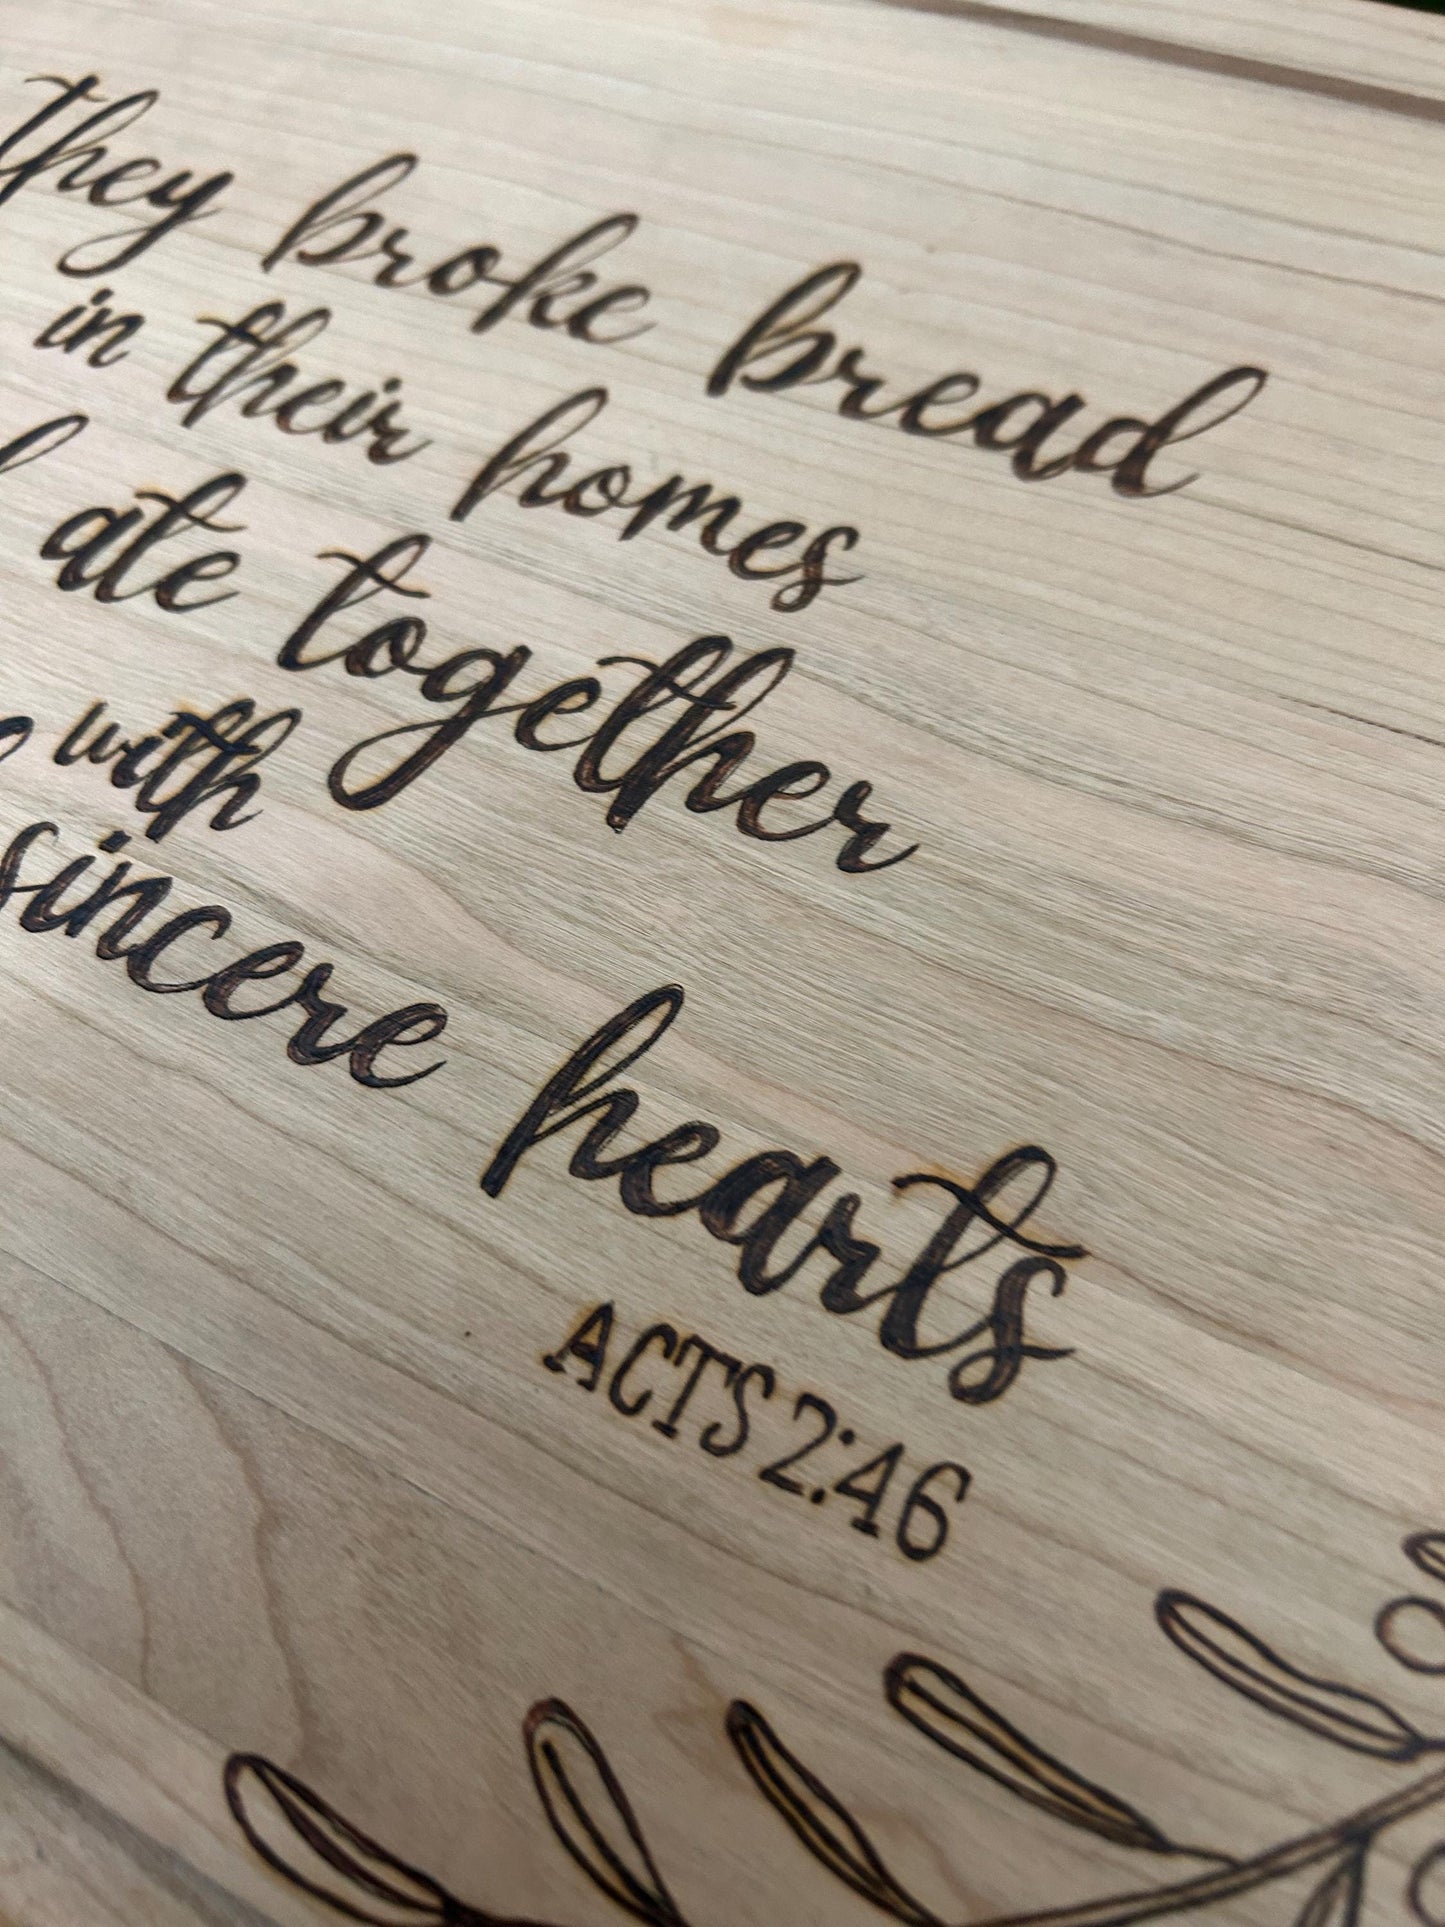 they broke bread
in their homes
ate together
with
sincere hearts
ACTS 2:46